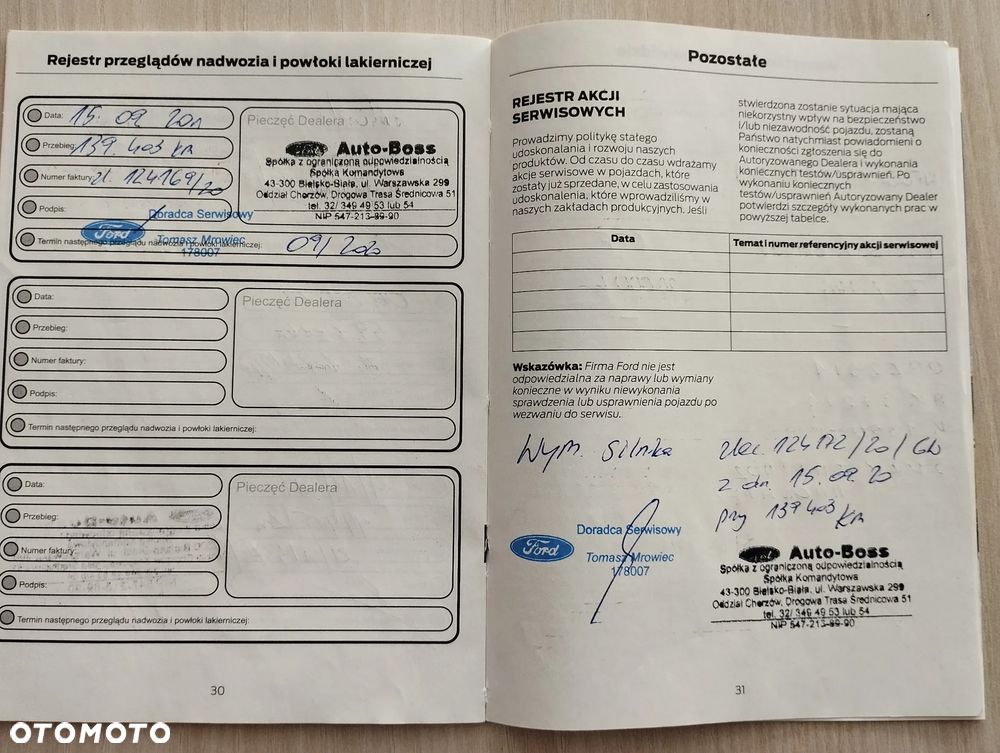 Rejestr przeglądów nadwozia i powłoki lakierniczej
Data: 15. 09. 20
Pieczęć Dealera
Przebieg: 139 403 km
Numer faktury: zl. 124169/20
Podpis:
Auto-Boss
Spółka z ograniczoną odpowiedzialnością
Spółka Komandytowa
43-300 Bielsko-Biała, ul. Warszawska 299
Oddział Chorzów, Drogowa Trasa Średnicowa 51
tel. 32/ 349 49 53 lub 54
NIP 547-213-89-90
Doradca Serwisowy
Ford
Tomasz Mrowiec
178007
Termin następnego przeglądu nadwozia i powłoki lakierniczej: 09/
Data:
Pieczęć Dealera
Przebieg:
Numer faktury:
Podpis:
Termin następnego przeglądu nadwozia i powłoki lakierniczej:
Data:
Pieczęć Dealera
Przebieg:
Numer faktury:
Podpis:
Termin następnego przeglądu nadwozia i powłoki lakierniczej:
30
Pozostałe
REJESTR AKCJI
SERWISOWYCH
Prowadzimy politykę stałego
udoskonalania i rozwoju naszych
produktów. Od czasu do czasu wdrażamy
akcje serwisowe w pojazdach, które
zostały już sprzedane, w celu zastosowania
udoskonalenia, które wprowadziliśmy w
naszych zakładach produkcyjnych. Jeśli
stwierdzona zostanie sytuacja mająca
niekorzystny wpływ na bezpieczeństwo
i/lub niezawodność pojazdu, zostaną
Państwo natychmiast powiadomieni o
konieczności zgłoszenia się do
Autoryzowanego Dealera i wykonania
koniecznych testów/usprawnień. Po
wykonaniu koniecznych
testów/usprawnień Autoryzowany Dealer
potwierdzi szczegóły wykonanych prac w
powyższej tabelce.
Data
Temat i numer referencyjny akcji serwisowej
Wskazówka: Firma Ford nie jest
odpowiedzialna za naprawy lub wymiany
konieczne w wyniku niewykonania
sprawdzenia lub usprawnienia pojazdu po
wezwaniu do serwisu.
Wym. silnika
zlec. 124172/20/Gb
z dn. 15.09.20
przy 139403 km
Doradca Serwisowy
Ford
Tomasz Mrowiec
178007
Auto-Boss
Spółka z ograniczoną odpowiedzialnością
Spółka Komandytowa
43-300 Bielsko-Biała, ul. Warszawska 299
Oddział Chorzów, Drogowa Trasa Średnicowa 51
tel. 32/ 349 49 53 lub 54
NIP 547-213-89-90
31
OTOMOTO